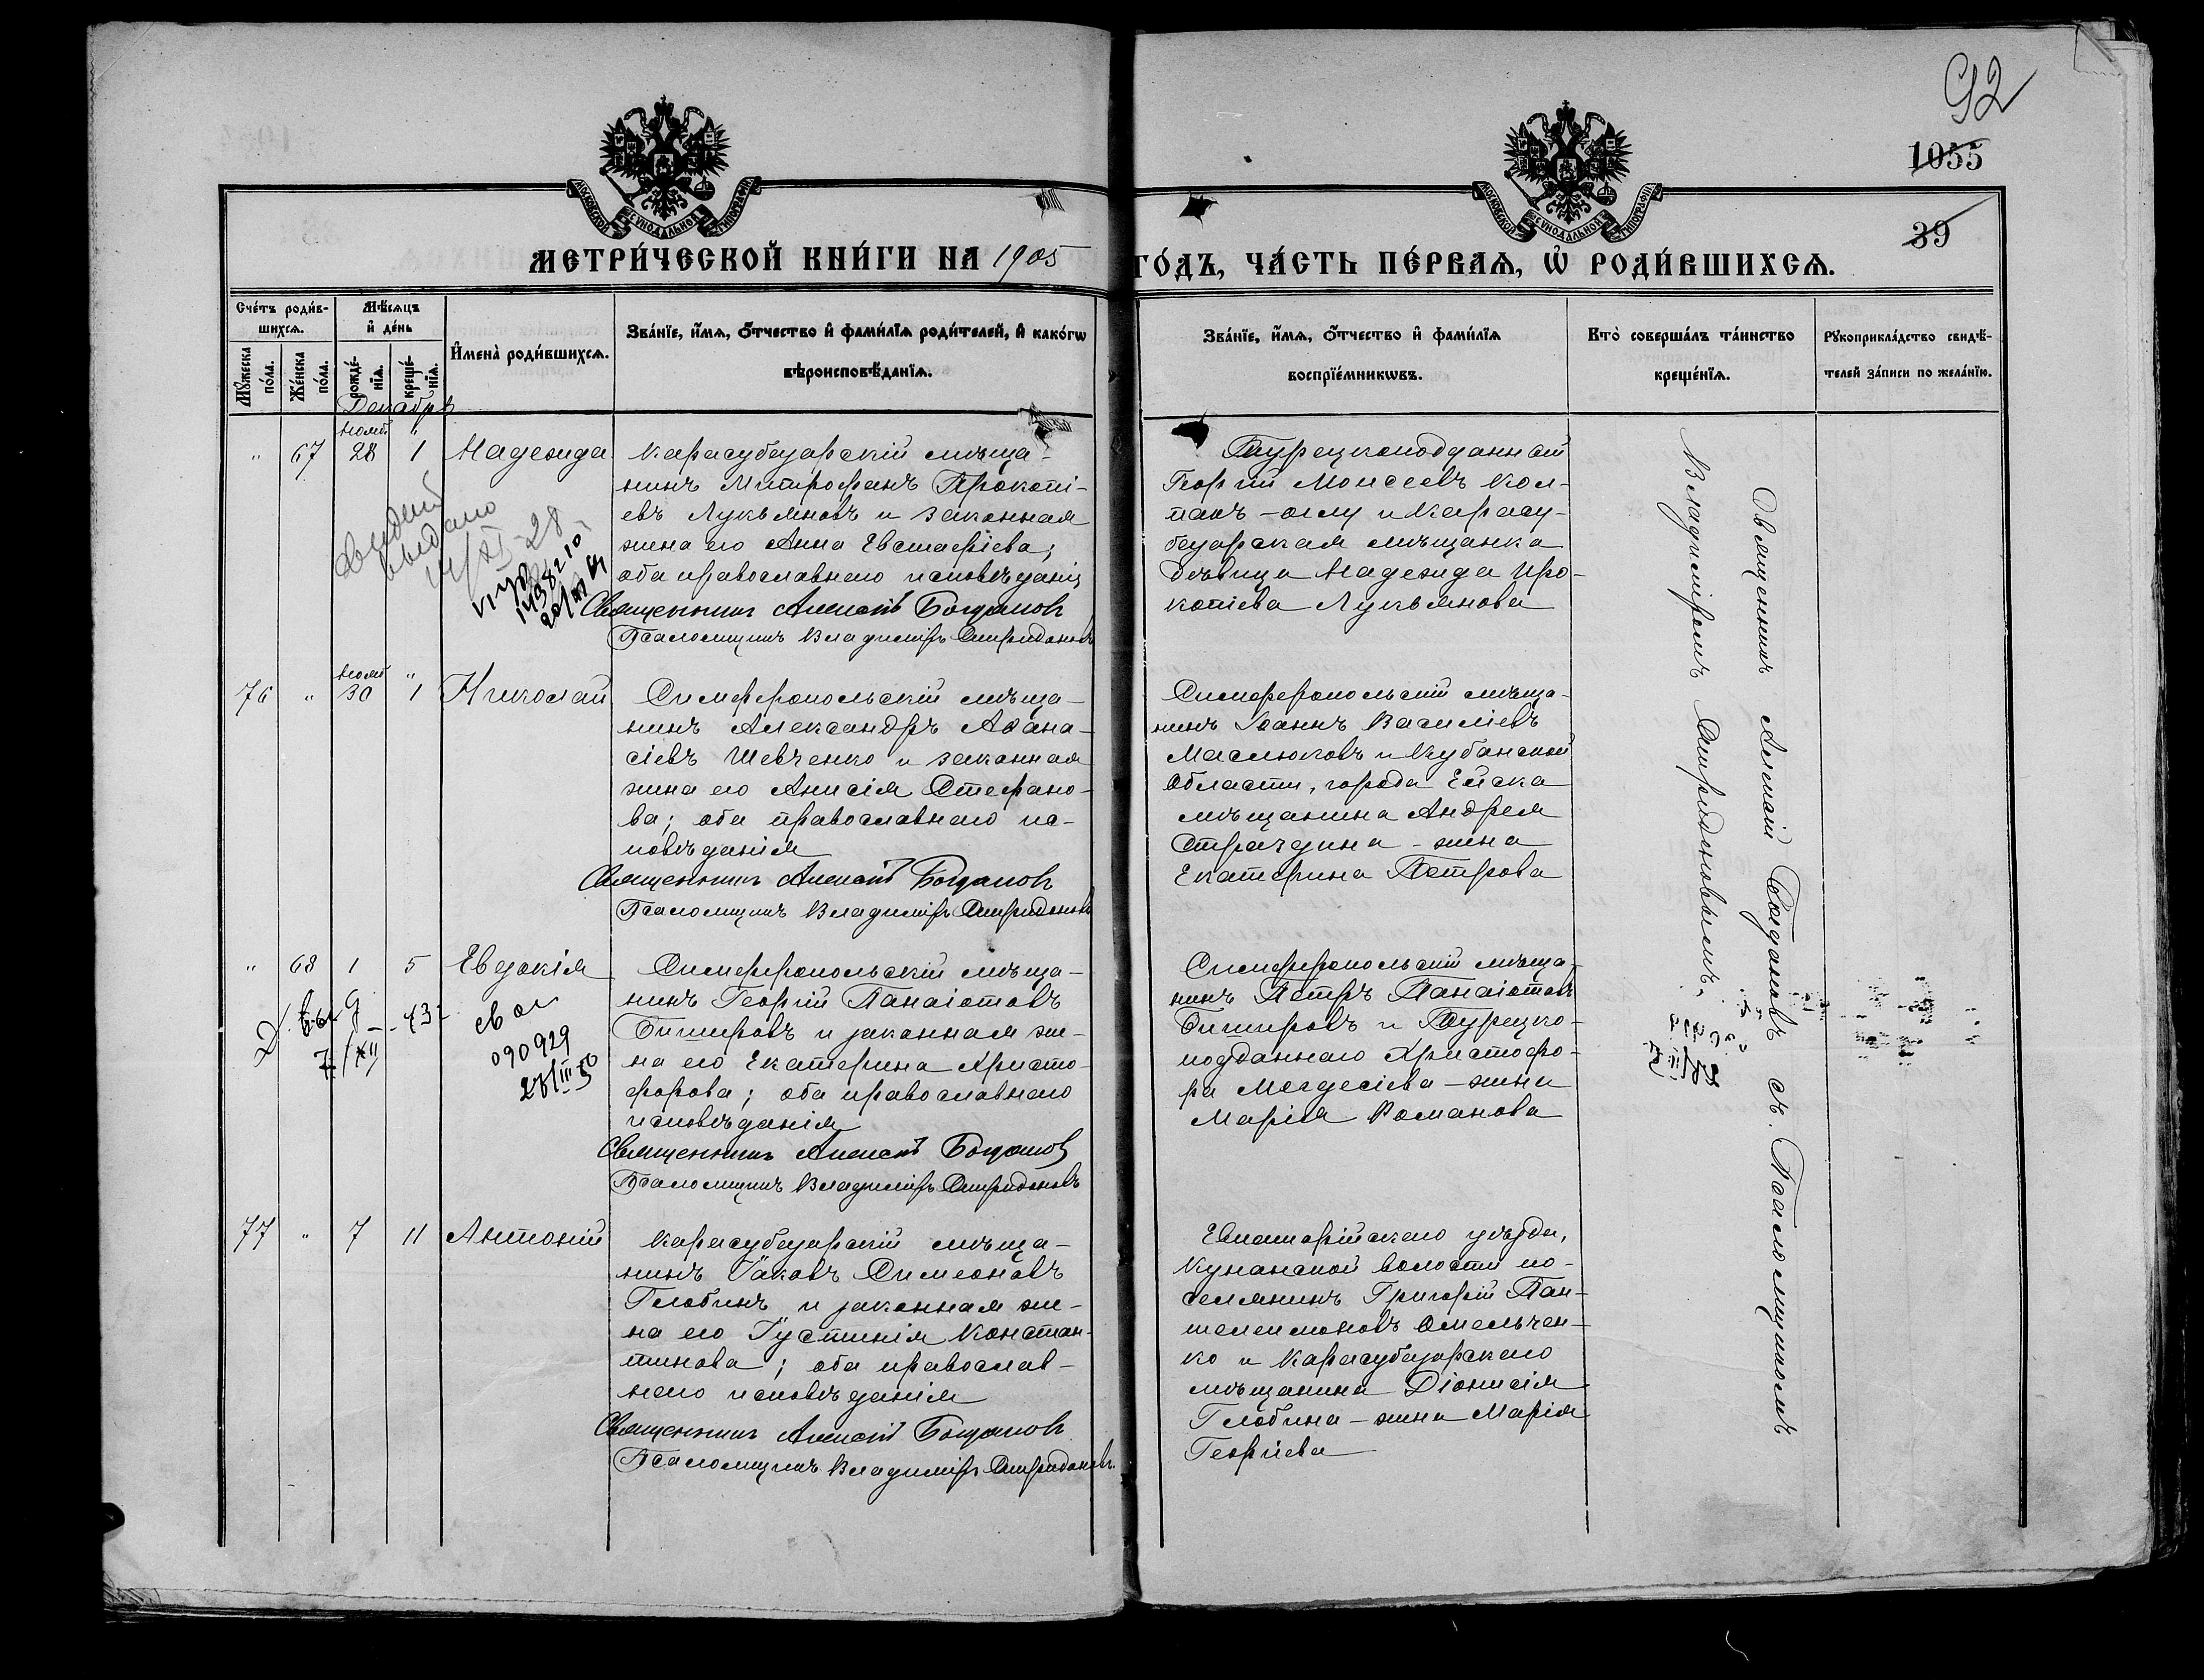 92
1055
39
МОСКОВСКОЙ СУНОДАЛЬНОЙ ТИПОГРАФІИ
МОСКОВСКОЙ СУНОДАЛЬНОЙ ТИПОГРАФІИ
МЕТРИ́ЧЕСКОЙ КНИ́ГИ НА 1905 ГО́ДЪ, ЧА́СТЬ ПЕ́РВАѦ, Ѡ҆ РОДИ́ВШИХСѦ.
Сче́тъ роди́в-
шихсѧ.
Мꙋ́жеска по́ла.
Же́нска по́ла.
Мѣ́сѧцъ
и҆ де́нь
рожде́-нїѧ.
креще́-нїѧ.
И҆мена̀ роди́вшихсѧ.
Зва́нїе, и҆́мѧ, ѻ҆́тчество и҆ фами́лїѧ роди́телей, и҆ како́гѡ
вѣроисповѣ́данїѧ.
Зва́нїе, и҆́мѧ, ѻ҆́тчество и҆ фами́лїѧ
воспрїе́мникѡвъ.
Кто̀ соверша́лъ та́инство
креще́нїѧ.
Рꙋкоприкла́дство свидѣ́-
телей за́писи по жела́нїю.
Декабрь
" 67 Нояб. 28 " 1 Надежда
Карасубазарскій мѣща-
нинъ Митрофанъ Прокопі-
евъ Лукьяновъ и законная
жена его Анна Евстафіева;
оба православнаго исповѣданія
Священникъ Алексій Богдановъ
Псаломщикъ Владиміръ Спиридоновъ
Турецкоподданный
Георгій Моисеевъ Кол-
пакъ-оглу и Карасу-
базарская мѣщанка
дѣвица Надежда Про-
копіева Лукьянова
выдано
76 " Нояб 30 " 1 Николай
Симферопольскій мѣща-
нинъ Александръ Аѳана-
сіевъ Шевченко и законная
жена его Анисія Стефано-
ва; оба православнаго ис-
повѣданія
Священникъ Алексій Богдановъ
Псаломщикъ Владиміръ Спиридоновъ
Симферопольскій мѣща-
нинъ Іоаннъ Василіевъ
Маслюковъ и Кубанской
Области, города Ейска
мѣщанина Андрея
жена
Екатерина Петрова
" 68 1 5 Евдокія
Симферопольскій мѣща-
нинъ Георгій Панаіотовъ
Бишировъ и законная же-
на его Екатерина Христо-
форова; оба православнаго
исповѣданія
Священникъ Алексій Богдановъ
Псаломщикъ Владиміръ Спиридоновъ
Симферопольскій мѣща-
нинъ Петръ Панаіотовъ
Бишировъ и Турецко-
подданнаго Христофо-
ра Мегдесіева - жена
Марія Романова
090929
77 " 7 11 Антоній
Карасубазарскій мѣща-
нинъ Іаковъ Симеоновъ
Глобинъ и законная же-
на его Іустинія Констан-
тинова; оба православ-
наго исповѣданія
Священникъ Алексій Богдановъ
Псаломщикъ Владиміръ Спиридоновъ.
Евпаторійскаго уѣзда,
Кунанской волости по-
селянинъ Григорій Пан-
телеимоновъ Омельчен-
ко и Карасубазарскаго
мѣщанина Діонисія
Глобина - жена Марія
Георгіева
Священникъ Алексій Богдановъ съ Псаломщикомъ
Владиміромъ Спиридоновымъ,